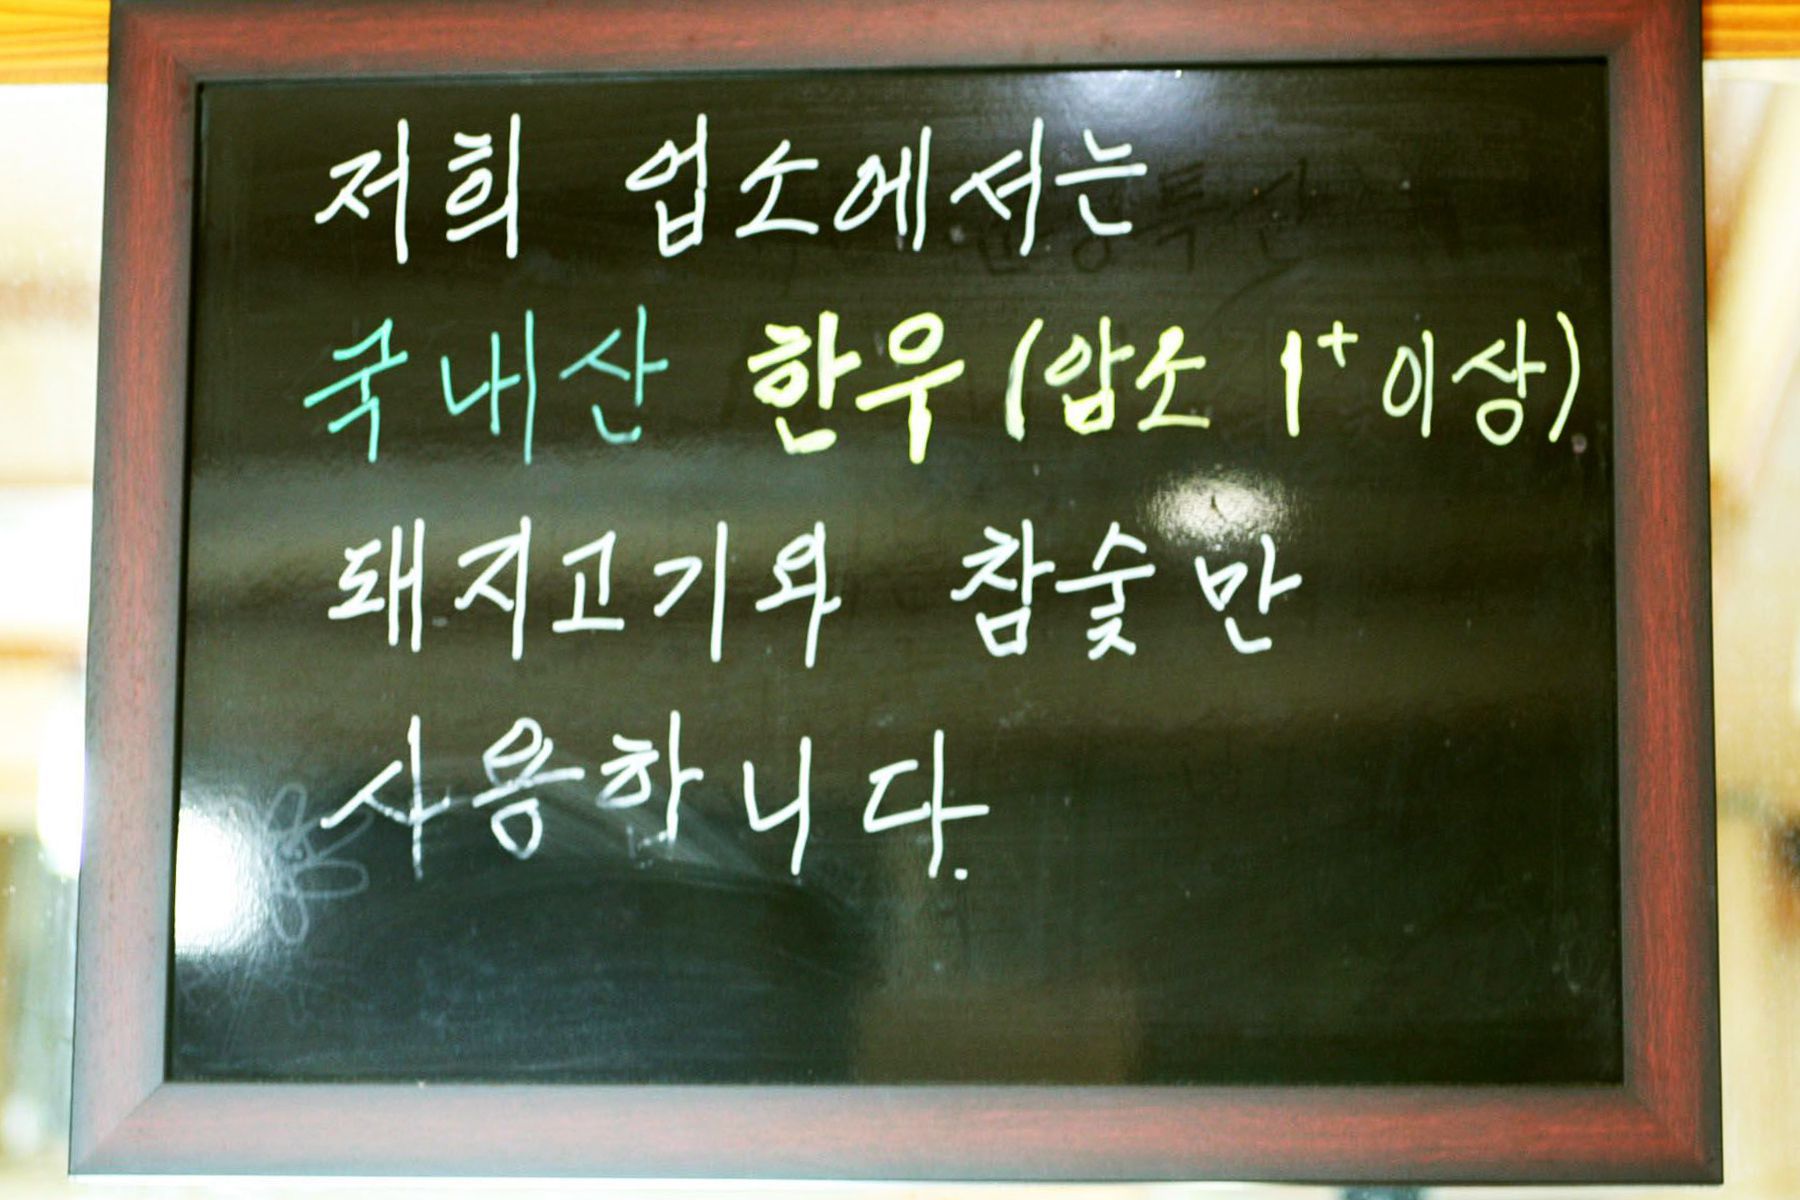 저희 업소에서는
국내산 한우 (암소 1+ 이상)
돼지고기와 참숯만
사용합니다.